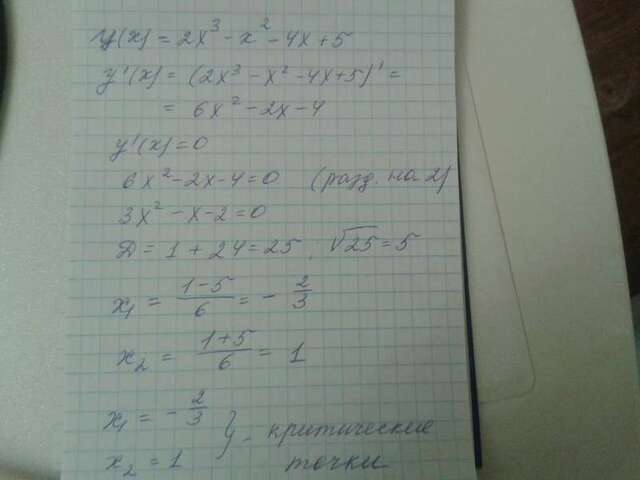 y(x) = 2x³ - x² - 4x + 5
y'(x) = (2x³ - x² - 4x + 5)' =
= 6x² - 2x - 4
y'(x) = 0
6x² - 2x - 4 = 0 (разд. на 2)
3x² - x - 2 = 0
D = 1 + 24 = 25, √25 = 5
x₁ = (1-5)/6 = - 2/3
x₂ = (1+5)/6 = 1
x₁ = - 2/3
x₂ = 1 } - критические
точки